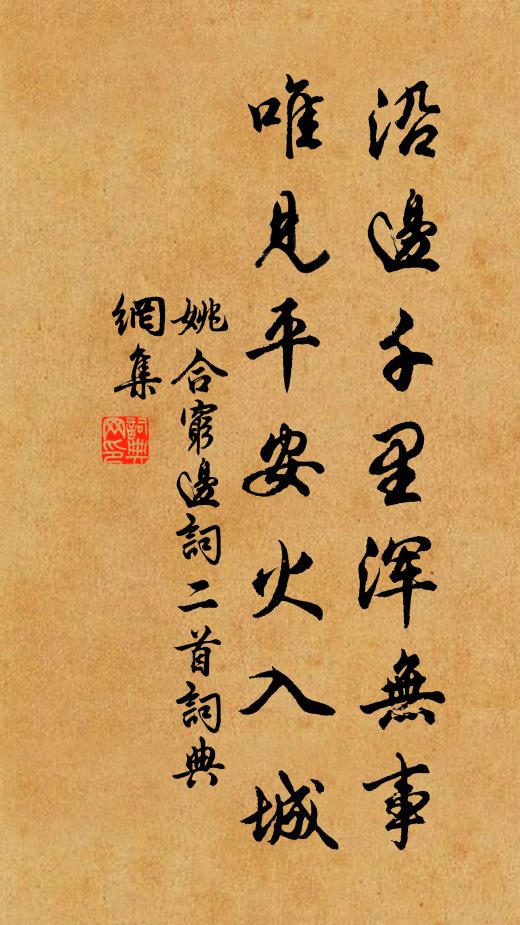 沿邊千里渾無事
唯見平安火入城
姚合窮邊詞二首詞典
網集
詞典
网印